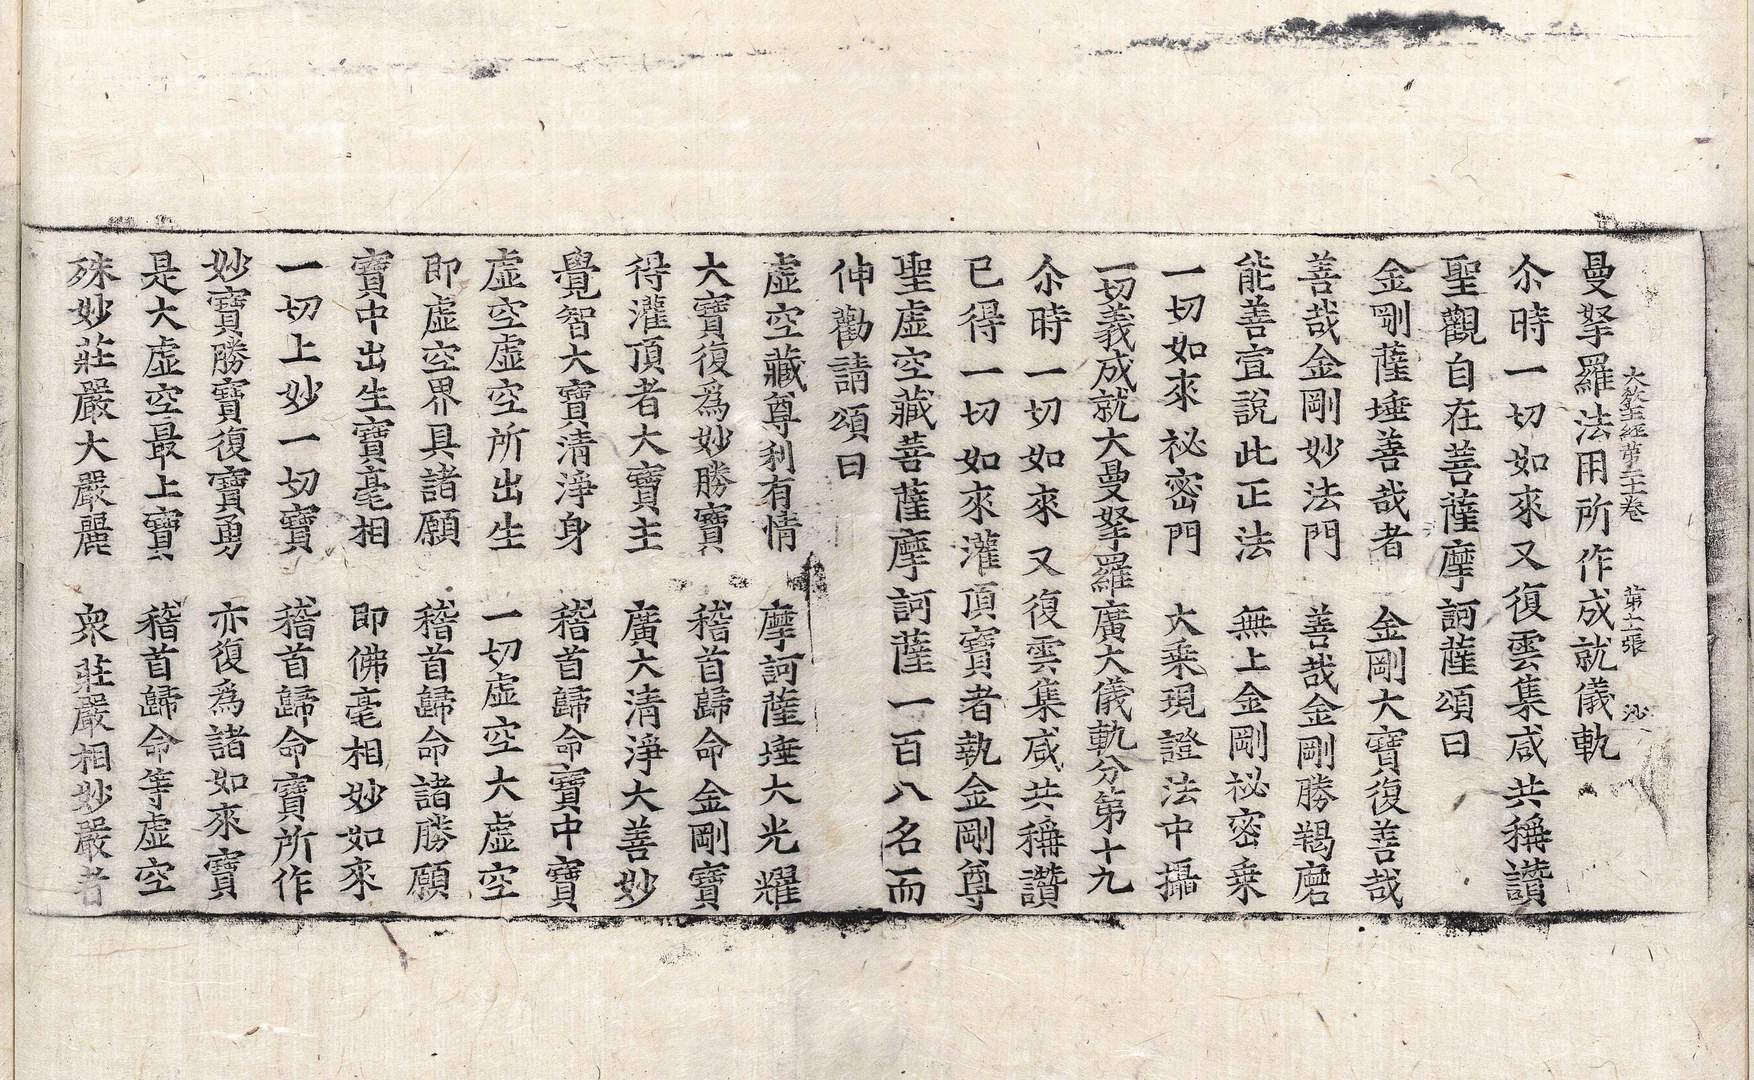 曼拏羅法用所作成就儀軌
大敎王經第二十卷 第十二張 沙
尒時一切如來又復雲集咸共稱讚
聖觀自在菩薩摩訶薩頌曰
金剛薩埵善哉者 金剛大寶復善哉
善哉金剛妙法門 善哉金剛勝羯磨
能善宣說此正法 無上金剛祕密乘
一切如來祕密門 大乘現證法中攝
一切義成就大曼拏羅廣大儀軌分第十九
尒時一切如來又復雲集咸共稱讚
已得一切如來灌頂寶者執金剛尊
聖虛空藏菩薩摩訶薩一百八名而
伸勸請頌曰
虛空藏尊利有情 摩訶薩埵大光耀
大寶復爲妙勝寶 稽首歸命金剛寶
得灌頂者大寶主 廣大清淨大善妙
覺智大寶清淨身 稽首歸命寶中寶
虛空虛空所出生 一切虛空大虛空
即虛空界具諸願 稽首歸命諸勝願
寶中出生寶毫相 即佛毫相妙如來
一切上妙一切寶 稽首歸命寶所作
妙寶勝寶復寶勇 亦復爲諸如來寶
是大虛空最上寶 稽首歸命等虛空
殊妙莊嚴大嚴麗 衆莊嚴相妙嚴者